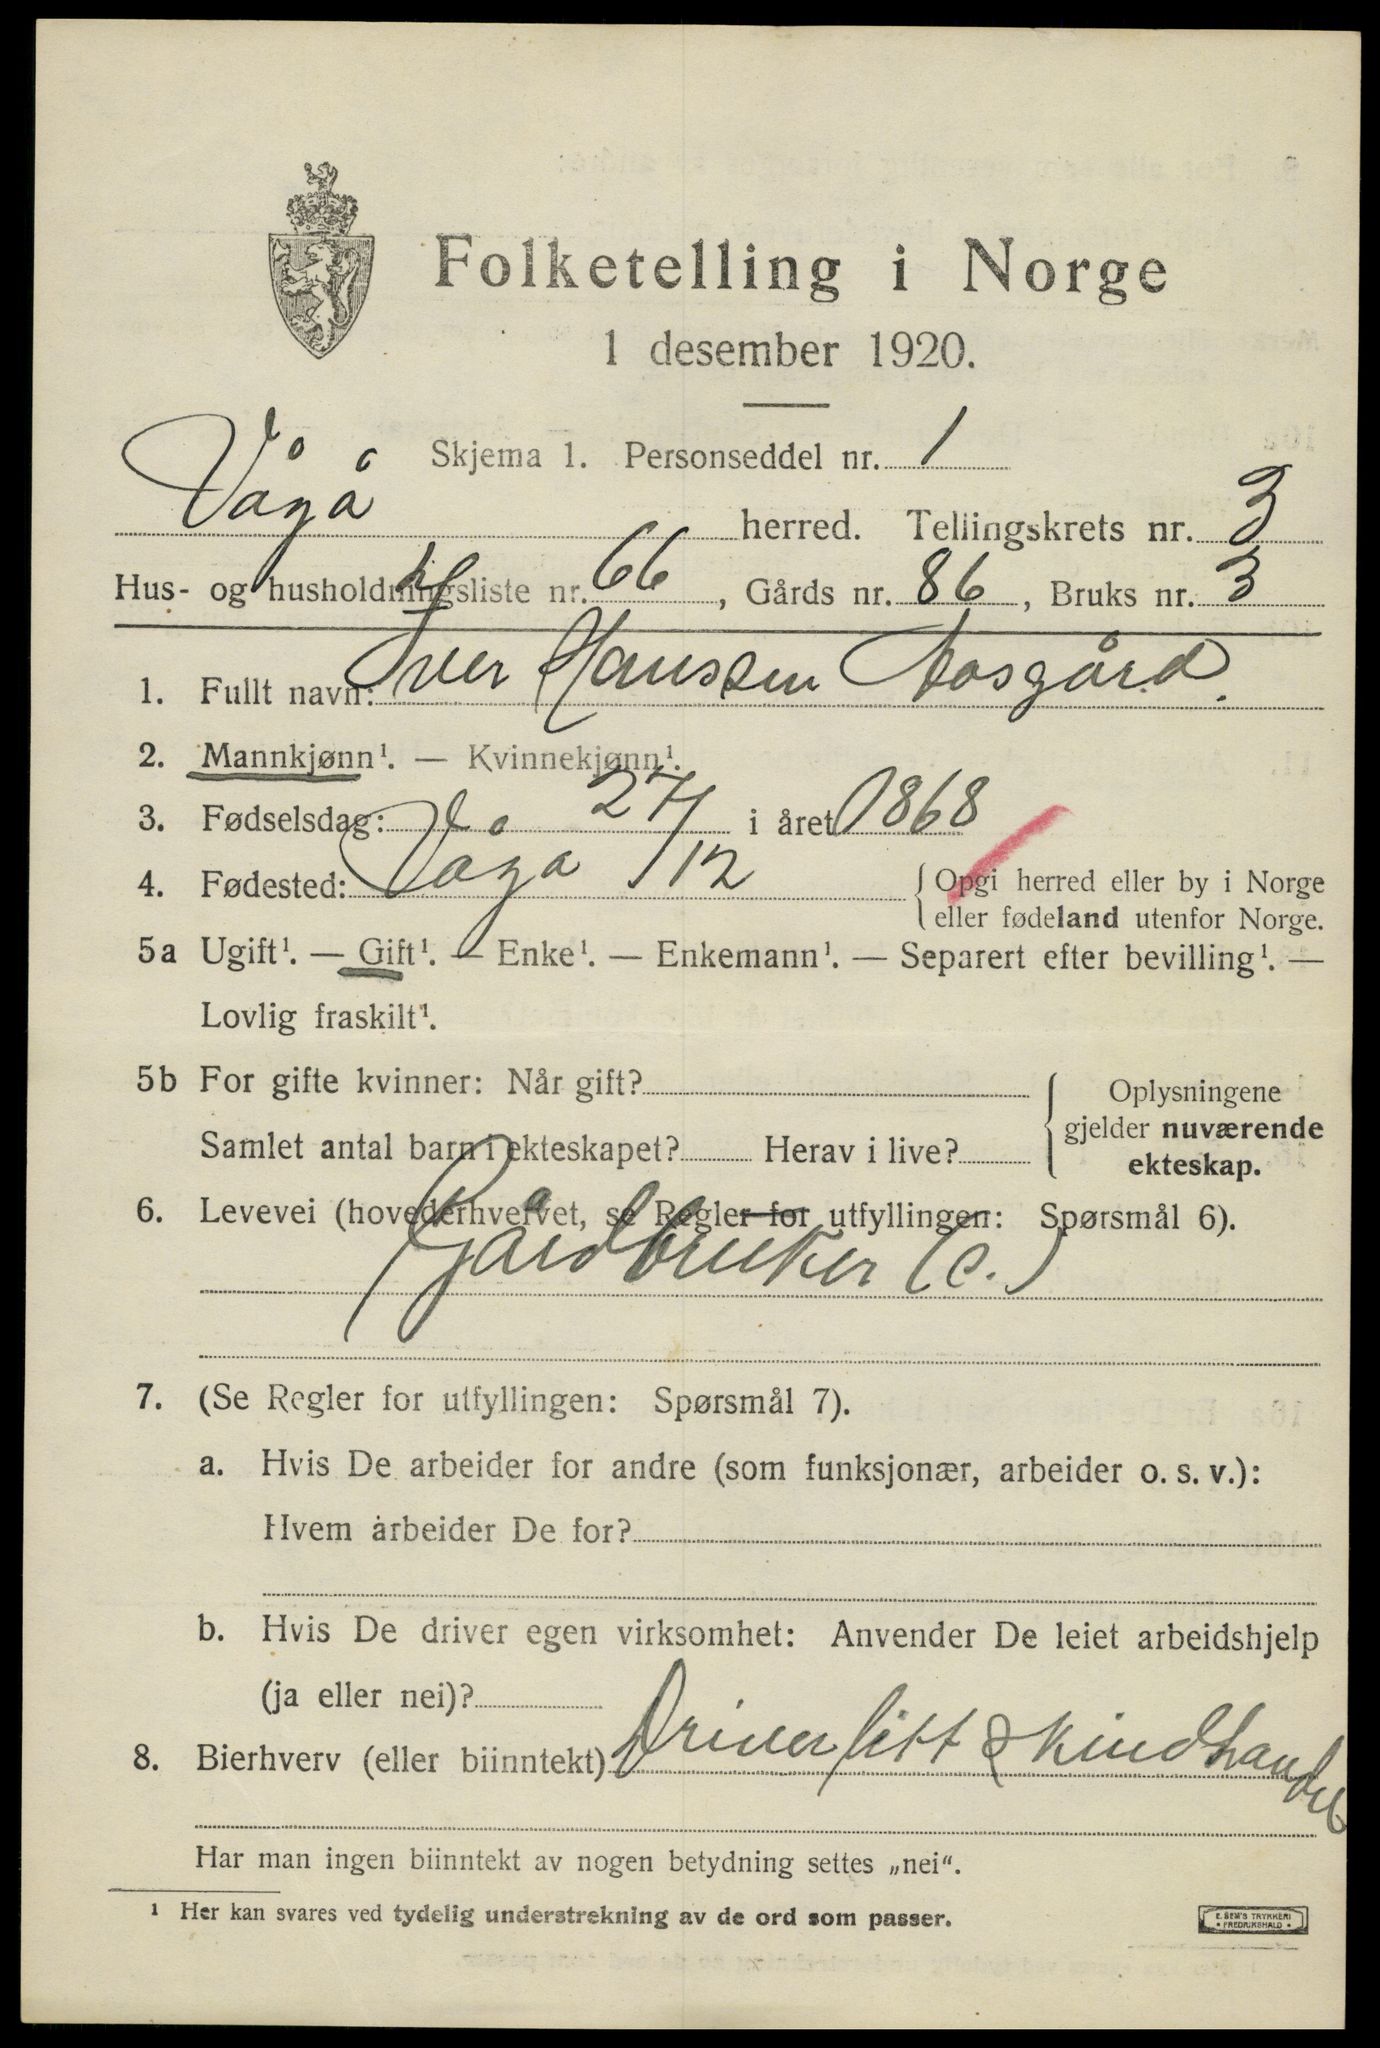 Folketelling i Norge
1 desember 1920.
Skjema 1. Personseddel nr. 1
Vågå herred. Tellingskrets nr. 3
Hus- og husholdningsliste nr. 66, Gårds nr. 86, Bruks nr. 3
1. Fullt navn: Iver Hanssen Aasgård.
2. Mannkjønn¹. — Kvinnekjønn¹.
3. Fødselsdag: 27/12 i året 1868
4. Fødested: Vågå {Opgi herred eller by i Norge
eller fødeland utenfor Norge.
5a Ugift¹. — Gift¹. — Enke¹. — Enkemann¹. — Separert efter bevilling¹. —
Lovlig fraskilt¹.
5b For gifte kvinner: Når gift?
Samlet antal barn i ekteskapet? Herav i live?
{Oplysningene
gjelder nuværende
ekteskap.
6. Levevei (hovederhvervet, se Regler for utfyllingen: Spørsmål 6).
Gårdbruker (c.)
7. (Se Regler for utfyllingen: Spørsmål 7).
a. Hvis De arbeider for andre (som funksjonær, arbeider o. s. v.):
Hvem arbeider De for?
b. Hvis De driver egen virksomhet: Anvender De leiet arbeidshjelp
(ja eller nei)?
8. Bierhverv (eller biinntekt) Driver litt skindhandel
Har man ingen biinntekt av nogen betydning settes „nei“.
¹ Her kan svares ved tydelig understrekning av de ord som passer.
E. SEM'S TRYKKERI
• FREDRIKSHALD •